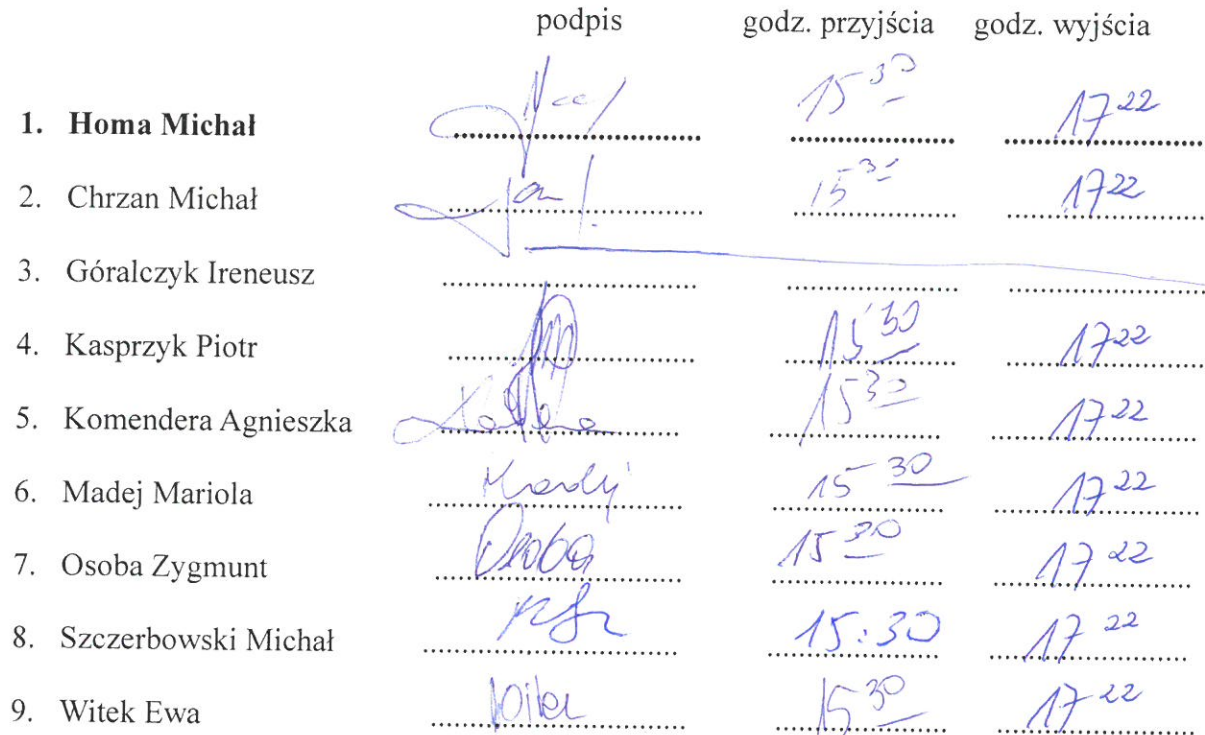 podpis godz. przyjścia godz. wyjścia
1. Homa Michał 15 30 17 22
2. Chrzan Michał 15 30 17 22
3. Góralczyk Ireneusz
4. Kasprzyk Piotr 15 30 17 22
5. Komendera Agnieszka 15 30 17 22
6. Madej Mariola Madej 15 30 17 22
7. Osoba Zygmunt Osoba 15 30 17 22
8. Szczerbowski Michał 15:30 17 22
9. Witek Ewa Witek 15 30 17 22